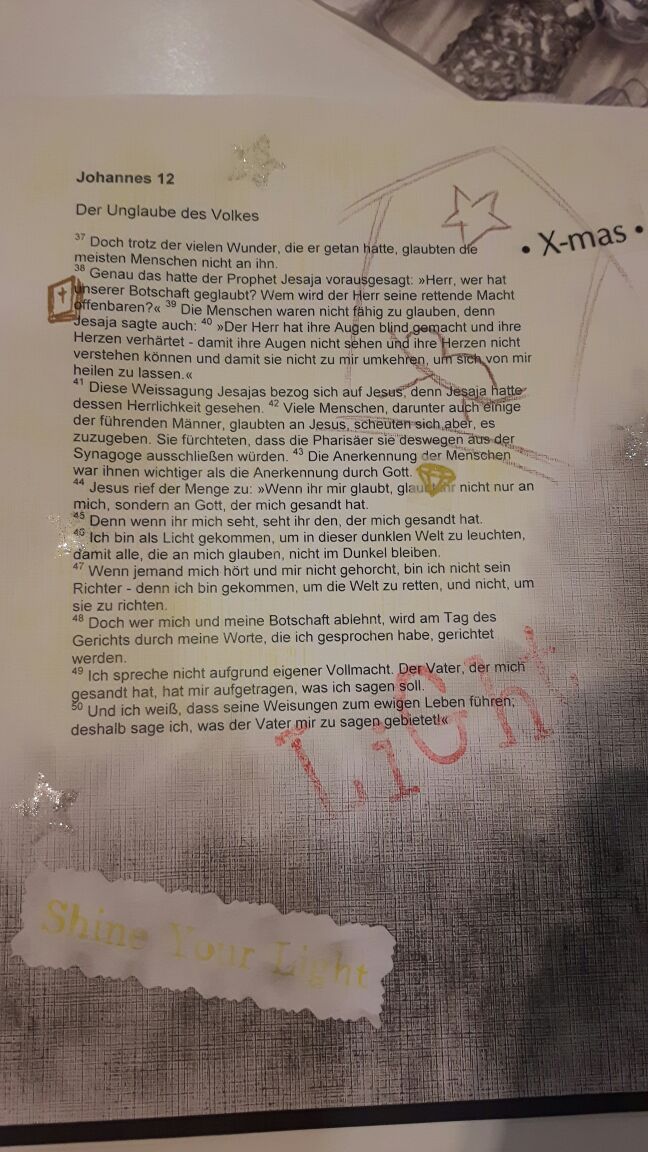 Johannes 12
Der Unglaube des Volkes
• X-mas •
37 Doch trotz der vielen Wunder, die er getan hatte, glaubten die
meisten Menschen nicht an ihn.
38 Genau das hatte der Prophet Jesaja vorausgesagt: »Herr, wer hat
unserer Botschaft geglaubt? Wem wird der Herr seine rettende Macht
offenbaren?« 39 Die Menschen waren nicht fähig zu glauben, denn
Jesaja sagte auch: 40 »Der Herr hat ihre Augen blind gemacht und ihre
Herzen verhärtet - damit ihre Augen nicht sehen und ihre Herzen nicht
verstehen können und damit sie nicht zu mir umkehren, um sich von mir
heilen zu lassen.«
41 Diese Weissagung Jesajas bezog sich auf Jesus, denn Jesaja hatte
dessen Herrlichkeit gesehen. 42 Viele Menschen, darunter auch einige
der führenden Männer, glaubten an Jesus, scheuten sich aber, es
zuzugeben. Sie fürchteten, dass die Pharisäer sie deswegen aus der
Synagoge ausschließen würden. 43 Die Anerkennung der Menschen
war ihnen wichtiger als die Anerkennung durch Gott.
44 Jesus rief der Menge zu: »Wenn ihr mir glaubt, glaubt ihr nicht nur an
mich, sondern an Gott, der mich gesandt hat.
45 Denn wenn ihr mich seht, seht ihr den, der mich gesandt hat.
46 Ich bin als Licht gekommen, um in dieser dunklen Welt zu leuchten,
damit alle, die an mich glauben, nicht im Dunkel bleiben.
47 Wenn jemand mich hört und mir nicht gehorcht, bin ich nicht sein
Richter - denn ich bin gekommen, um die Welt zu retten, und nicht, um
sie zu richten.
48 Doch wer mich und meine Botschaft ablehnt, wird am Tag des
Gerichts durch meine Worte, die ich gesprochen habe, gerichtet
werden.
49 Ich spreche nicht aufgrund eigener Vollmacht. Der Vater, der mich
gesandt hat, hat mir aufgetragen, was ich sagen soll.
50 Und ich weiß, dass seine Weisungen zum ewigen Leben führen;
deshalb sage ich, was der Vater mir zu sagen gebietet!«
LiGht
Shine Your Light